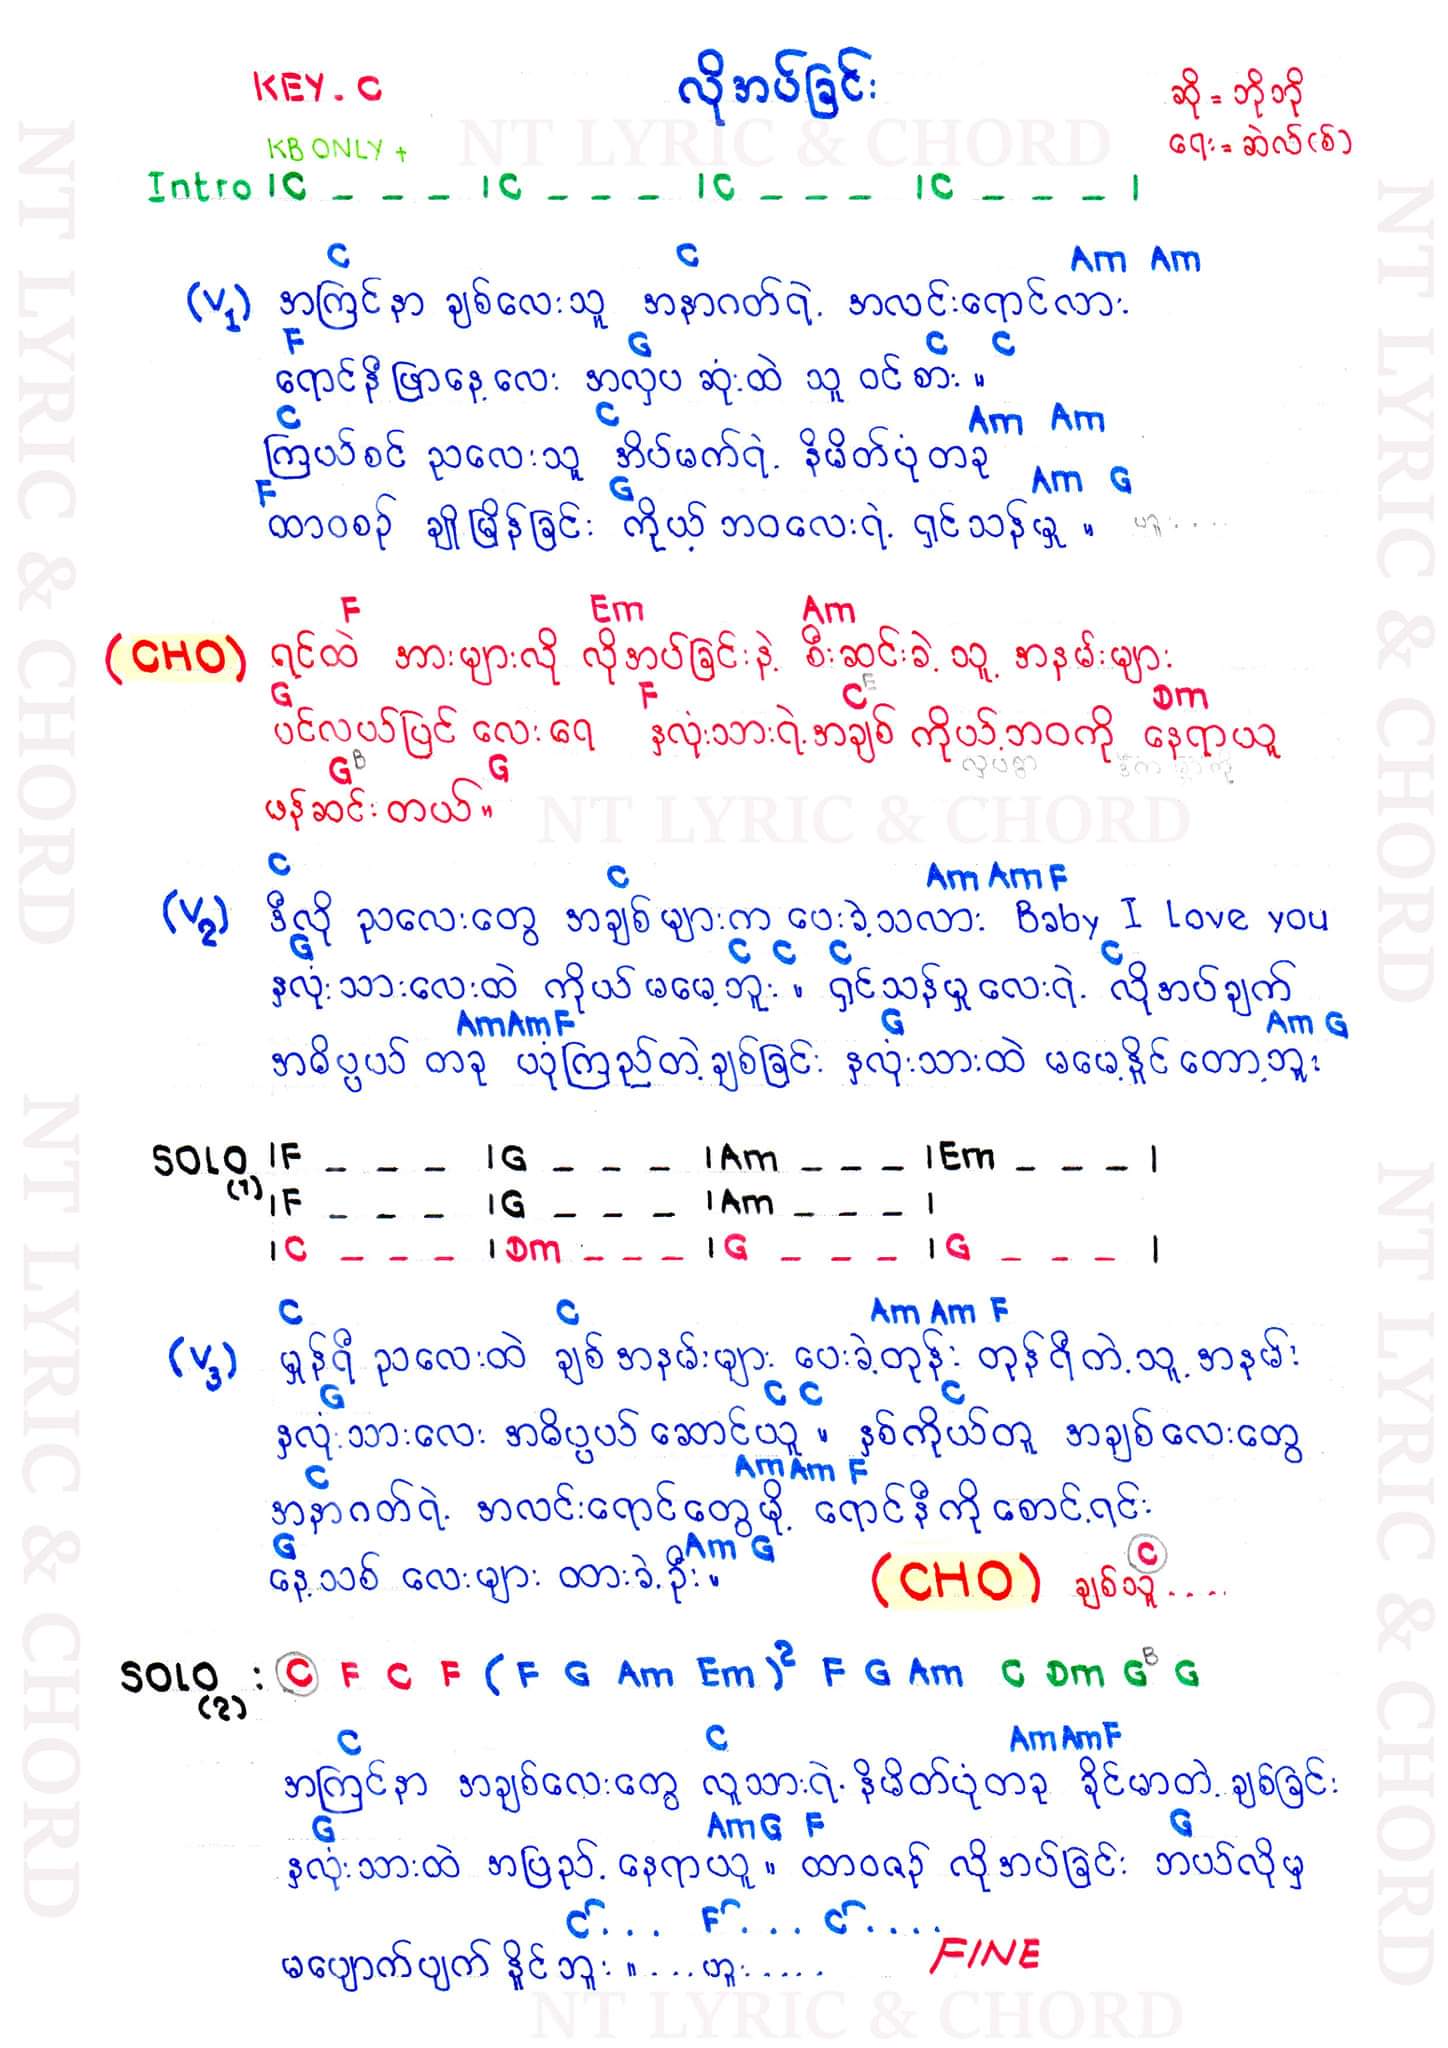 KEY. C
လိုအပ်ခြင်း
ဆို = ဘိုဘို
ရေး = ဆဲလ်(စ်)
KB ONLY +
NT LYRIC & CHORD
Intro |C _ _ _ |C _ _ _ |C _ _ _ |C _ _ _ |
C C Am Am
(V1) အကြင်နာ ချစ်လေးသူ အနာဂတ်ရဲ့ အလင်းရောင်လား
F G C C
ရောင်နီဖြာနေ့လေး အလှပဆုံးထဲ သူ ဝင်စား ။
C C Am Am
ကြယ်စင် ညလေးသူ အိပ်မက်ရဲ့ နိမိတ်ပုံတခု
F G Am G
ထာဝစဉ် ချိုမြိန်ခြင်း ကိုယ့်ဘဝလေးရဲ့ ရှင်သန်မှု ။ ဟူး....
F Em Am
(CHO) ရင်ထဲ အားများလို လိုအပ်ခြင်းနဲ့ စီးဆင်းခဲ့သူ့ အနမ်းများ
G F C E Dm
ပင်လယ်ပြင် လေးရေ နှလုံးသားရဲ့အချစ် ကိုယ့်ဘဝကို နေရာယူ
G B G
ဖန်ဆင်းတယ်။
NT LYRIC & CHORD
C C Am Am F
(V2) ဒီလို ညလေးတွေ အချစ်များက ပေးခဲ့သလား Baby I Love you
G C C C C
နှလုံးသားလေးထဲ ကိုယ်မမေ့ဘူး ။ ရှင်သန်မှုလေးရဲ့ လိုအပ်ချက်
Am Am F G Am G
အဓိပ္ပယ် တခု ယုံကြည်တဲ့ချစ်ခြင်း နှလုံးသားထဲ မမေ့နိုင်တော့ဘူး
SOLO (1) |F _ _ _ |G _ _ _ |Am _ _ _ |Em _ _ _ |
|F _ _ _ |G _ _ _ |Am _ _ _ |
|C _ _ _ |Dm _ _ _ |G _ _ _ |G _ _ _ |
C C Am Am F
(V3) မှုန်ရီ ညလေးထဲ ချစ်အနမ်းများ ပေးခဲ့တုန်း တုန်ရီကဲ့သူ့အနမ်း
G C C C
နှလုံးသားလေး အဓိပ္ပယ်ဆောင်ယူ ။ နှစ်ကိုယ်တူ အချစ်လေးတွေ
C Am Am F
အနာဂတ်ရဲ့ အလင်းရောင်တွေမို့ ရောင်နီကိုစောင့်ရင်း
G Am G
နေ့သစ်လေးများ ထားခဲ့ဦး။
C
(CHO) ချစ်သူ....
SOLO (2) : C F C F (F G Am Em)2 F G Am C Dm G B G
C C Am Am F
အကြင်နာ အချစ်လေးတွေ လူသားရဲ့နိမိတ်ပုံတခု ခိုင်မာတဲ့ချစ်ခြင်း
G Am G F G
နှလုံးသားထဲ အပြည့်နေရာယူ။ ထာဝစဉ် လိုအပ်ခြင်း ဘယ်လိုမှ
C... F... C....
မပျောက်ပျက်နိုင်ဘူး ။....ဟူး.....
FINE
NT LYRIC & CHORD
NT LYRIC & CHORD
NT LYRIC & CHORD
NT LYRIC & CHORD
NT LYRIC & CHORD